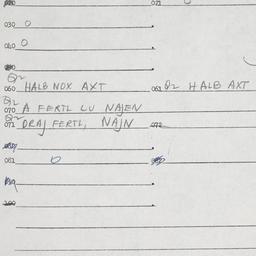 021
030 0
040 0
02
060 HALB NOX AXT
061 02 HALB AXT
02
070 A FERTL CU NAJEN
02
071 DRAJ FERTL, NAJN
072
081 0